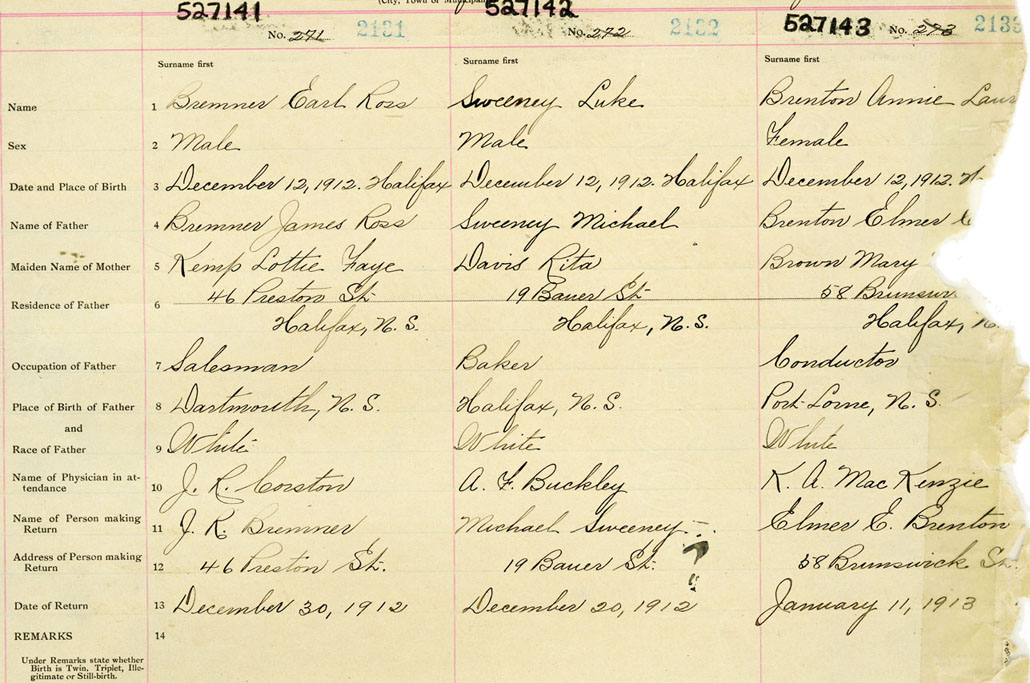 (City, Town or Municipal
527141 527142 527143
No. 271 2131 No. 272 2132 No. 273 2133
Surname first Surname first Surname first
Name 1 Bremner Earl Ross Sweeney Luke Brenton Annie Laur
Sex 2 Male Male Female
Date and Place of Birth 3 December 12, 1912. Halifax December 12, 1912. Halifax December 12, 1912. H
Name of Father 4 Bremner James Ross Sweeney Michael Brenton Elmer E
Maiden Name of Mother 5 Kemp Lottie Faye Davis Rita Brown Mary
46 Preston St. 19 Bauer St. 58 Brunswi
Residence of Father 6
Halifax, N. S. Halifax, N. S. Halifax, N.
Occupation of Father 7 Salesman Baker Conductor
Place of Birth of Father 8 Dartmouth, N. S. Halifax, N. S. Port Lorne, N. S.
and
Race of Father 9 White White White
Name of Physician in at-
tendance 10 J. R. Corston A. F. Buckley K. A. MacKenzie
Name of Person making
Return 11 J. R. Bremner Michael Sweeney Elmer E. Brenton
Address of Person making
Return 12 46 Preston St. 19 Bauer St. 58 Brunswick St.
Date of Return 13 December 30, 1912 December 20, 1912 January 11, 1913
REMARKS 14
Under Remarks state whether
Birth is Twin, Triplet, Ille-
gitimate or Still-birth.